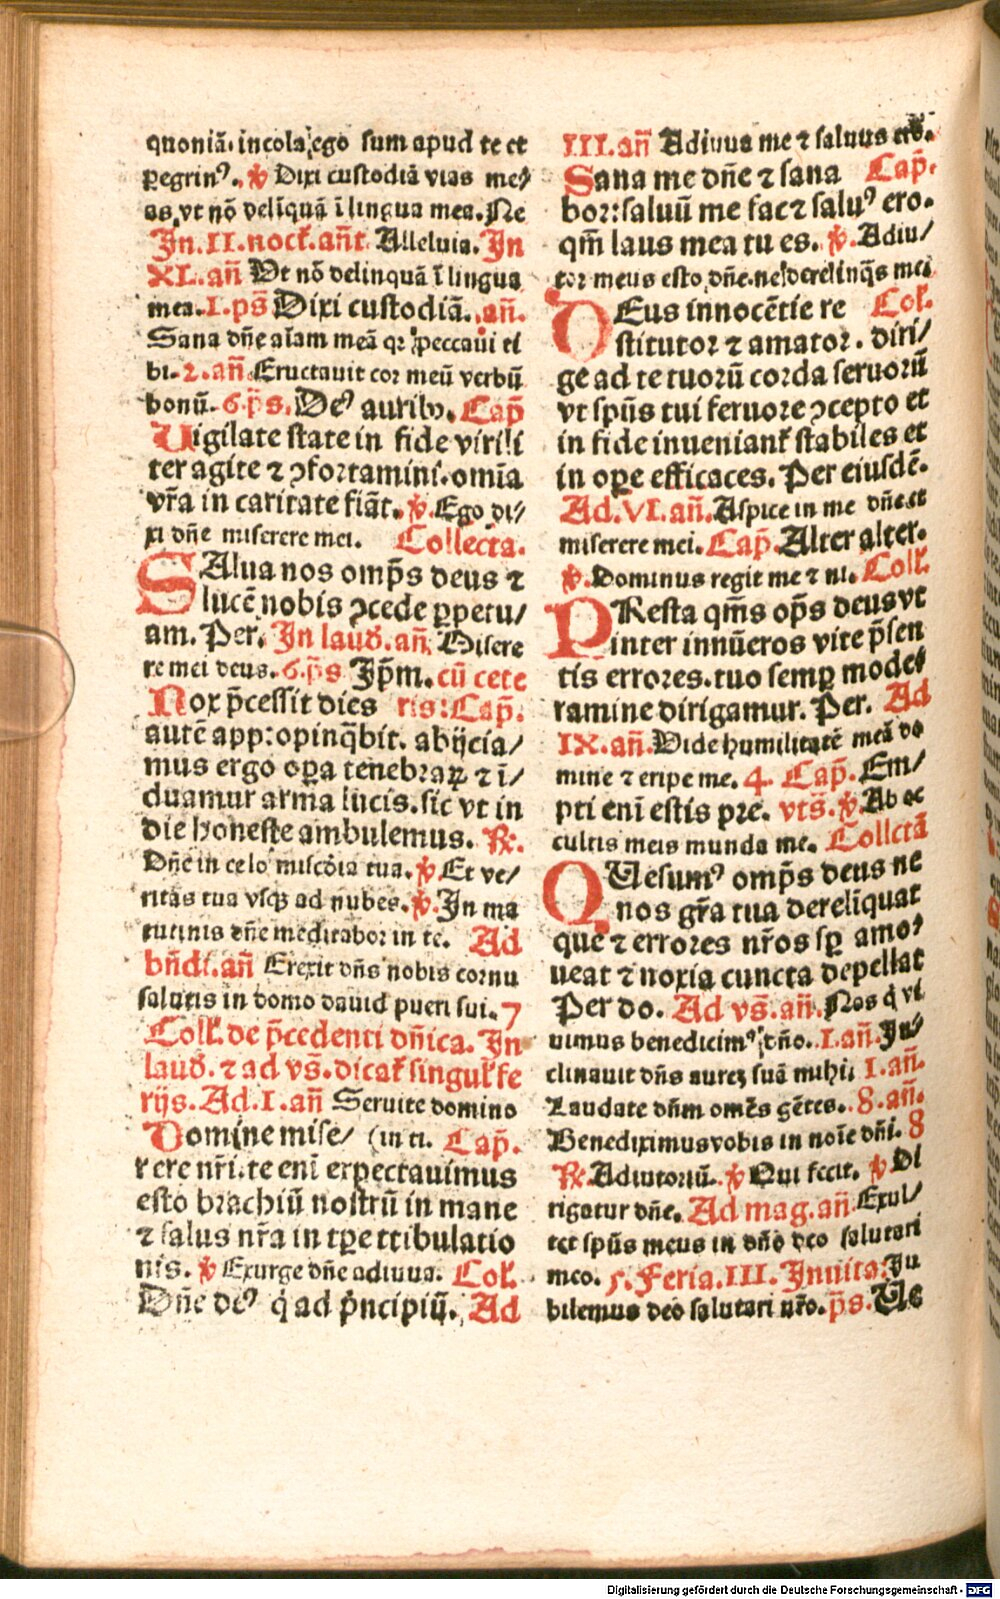 quoniā. incola ego sum apud te et
ꝑegrinꝰ. ꝟ Dixi custodiā vias me/
as, vt nō deliquā ī lingua mea. Ne
In. II. noct. añt. Alleluia. In
XL. añ Vt nō delinquā ī lingua
mea. I. ps̄ Dixi custodiā. añ.
Sana dñe aīam meā qꝛ peccaui ti
bi. 2. añ Eructauit cor meū verbū
bonū. 6. ps̄. Deꝰ auribꝫ. Cap̄
Uigilate state in fide virili
ter agite ⁊ ꝯfortamini. omīa
vr̄a in caritate fiāt. ꝟ. Ego di/
xi dñe miserere mei. Collecta.
SAlua nos omp̄s deus ⁊
lucē nobis ꝯcede ꝑpetu/
am. Per. In laud. añ. Misere
re mei deus. 6. ps̄ Ip̄m. cū cete
Nox p̄cessit dies ris: Cap̄.
autē app:opinq̄bit. abijcia/
mus ergo oꝑa tenebraꝝ ⁊ ī/
duamur arma lucis. sic vt in
die honeste ambulemus. ℟.
Dñe in celo miscdia tua. ꝟ. Et ve/
ritas tua vsqꝫ ad nubes. ꝟ. In ma
tutinis dñe meditabor in te. Ad
bn̄di. añ Erexit dñs nobis cornu
salutis in domo dauid pueri sui. 7
Coll. de p̄cedenti dñica. In
laud. ⁊ ad vs̄. dicat singul fe
rijs. Ad. I. añ Seruite domino
Domine mise/ (in ti. Cap̄.
rere nr̄i. te enī expectauimus
esto brachiū nostrū in mane
⁊ salus nr̄a in tꝑe ttibulatio
nis. ꝟ Exurge dñe adiuua. Col.
Dñe deꝰ q̇ ad p̄ncipiū. Ad
III. añ Adiuua me ⁊ saluus ero.
Sana me dñe ⁊ sana Cap̄.
bor: saluū me fac ⁊ saluꝰ ero.
qm̄ laus mea tu es. ꝟ. Adiu/
tor meus esto dñe. ne derelinq̄s mei
DEus innocētie re Col.
stitutor ⁊ amator. diri/
ge ad te tuorū corda seruorū
vt sp̄us tui feruore ꝯcepto et
in fide inueniant stabiles et
in oꝑe efficaces. Per eiusdē.
Ad. VI. añ. Aspice in me dñe et
miserere mei. Cap̄. Alter alter.
ꝟ. Dominus regit me ⁊ ni. Coll.
PResta qm̄s op̄s deus vt
inter innūeros vite p̄sen
tis errores. tuo semꝑ mode
ramine dirigamur. Per. Ad
IX. añ. Vide humilitatē meā do
mine ⁊ eripe me. 4. Cap̄. Em/
pti enī estis pre. vts̄. ꝟ. Ab oc
cultis meis munda me. Collctā
QUesumꝰ omp̄s deus ne
nos gr̄a tua derelīquat
que ⁊ errores nr̄os sꝑ amo/
ueat ⁊ noxia cuncta depellat
Per do. Ad vs̄. añ. Nos q̇ vi
uimus benedicimꝰ dño. I. añ. In/
clinauit dñs aureꝫ suā mihi. I. añ.
Laudate dñm omēs gētes. 8. añ.
Benediximus vobis in noīe dñi. 8
℟. Adiutoriū. ꝟ Qui fecit. ꝟ Di
rigatur dñe. Ad mag. añ Exul/
tet sp̄us meus in dño deo salutari
meo. 5. Feria. III. Inuita: Iu
bilemus deo salutari nr̄o. ps̄. Ue
Digitalisierung gefördert durch die Deutsche Forschungsgemeinschaft - DFG